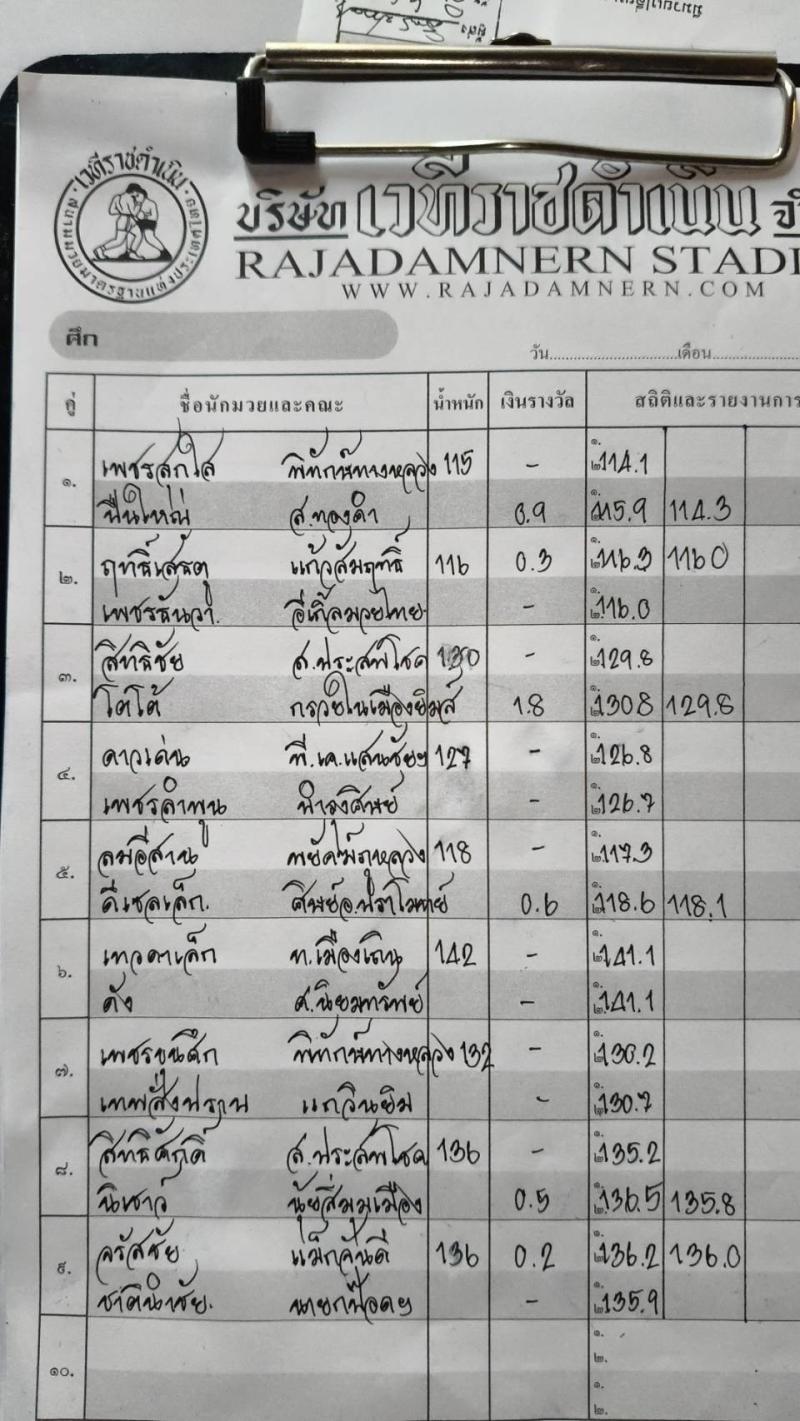 เวทีราชดำเนิน
สนามมวยมาตรฐานแห่งประเทศไทย
บริษัท เวทีราชดำเนิน
RAJADAMNERN STADI
WWW.RAJADAMNERN.COM
ศึก
วัน เดือน
คู่ ชื่อนักมวยและคณะ น้ำหนัก เงินรางวัล สถิติและรายงานการ
๑. เพชรสุกใส พิทักษ์ทางหลวง 115 - ๑. ๒. 114.1
ปืนใหญ่ ส.ทองคำ 0.9 ๑. ๒. 115.9 114.3
๒. ฤทธิ์เสรฐ แก้วสัมฤทธิ์ 116 0.3 ๑. ๒. 116.3 116.0
เพชรธันวา. อีเกิ้ลมวยไทย. - ๑. ๒. 116.0
๓. สิทธิชัย ส.ประสพโชค 130 - ๑. ๒. 129.8
โตโต้ กรวยในเมืองยิมส์ 1.8 ๑. ๒. 130.8 129.8
๔. ดาวเด่น พี.เค.แสนชัยฯ 127 - ๑. ๒. 126.8
เพชรลำพูน - ๑. ๒. 126.7
๕. ลมอีสาน พยัคฆ์ภูหลวง 118 - ๑. ๒. 117.3
ดีเซลเล็ก. ศิษย์อ.ปราโมทย์ 0.6 ๑. ๒. 118.6 118.1
๖. เทวดาเล็ก ท.เมืองเถิน 142 - ๑. ๒. 141.1
ดัง ศ.นิยมทรัพย์ - ๑. ๒. 141.1
๗. เพชรขุนศึก พิทักษ์ทางหลวง 132 - ๑. ๒. 130.2
เทพสั่งปราบ แกวินยิม - ๑. ๒. 130.7
๘. สิทธิศักดิ์ ส.ประสพโชค 136 - ๑. ๒. 135.2
นิเชาว์ นุ้ยสี่มุมเมือง 0.5 ๑. ๒. 136.5 135.8
๙. จรัสชัย แม็กจันดี 136 0.2 ๑. ๒. 136.2 136.0
ชาตินำชัย. นายกป๊อดฯ - ๑. ๒. 135.9
๑๐. ๑.
๒.
๑.
๒.